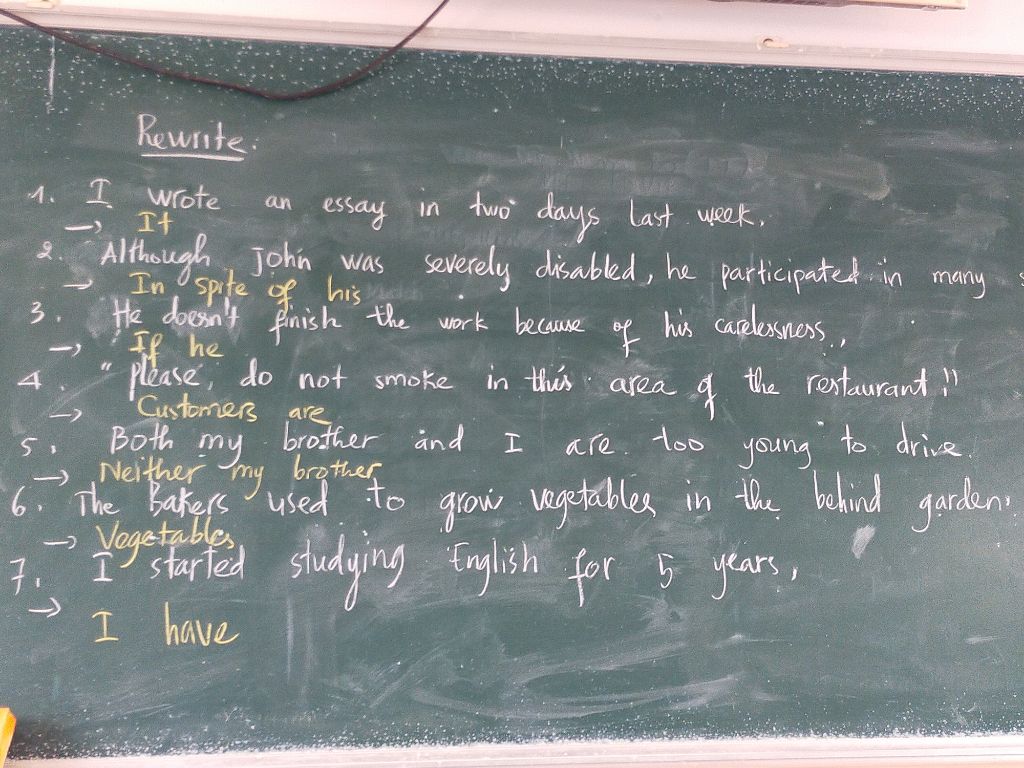 Rewrite:
1. I wrote an essay in two days last week.
→ It
2. Although John was severely disabled, he participated in many
→ In spite of his
3. He doesn't finish the work because of his carelessness.
→ If he
4. "Please, do not smoke in this area of the restaurant!"
→ Customers are
5. Both my brother and I are too young to drive.
→ Neither my brother
6. The Bakers used to grow vegetables in the behind garden.
→ Vegetables
7. I started studying English for 5 years.
→
I have